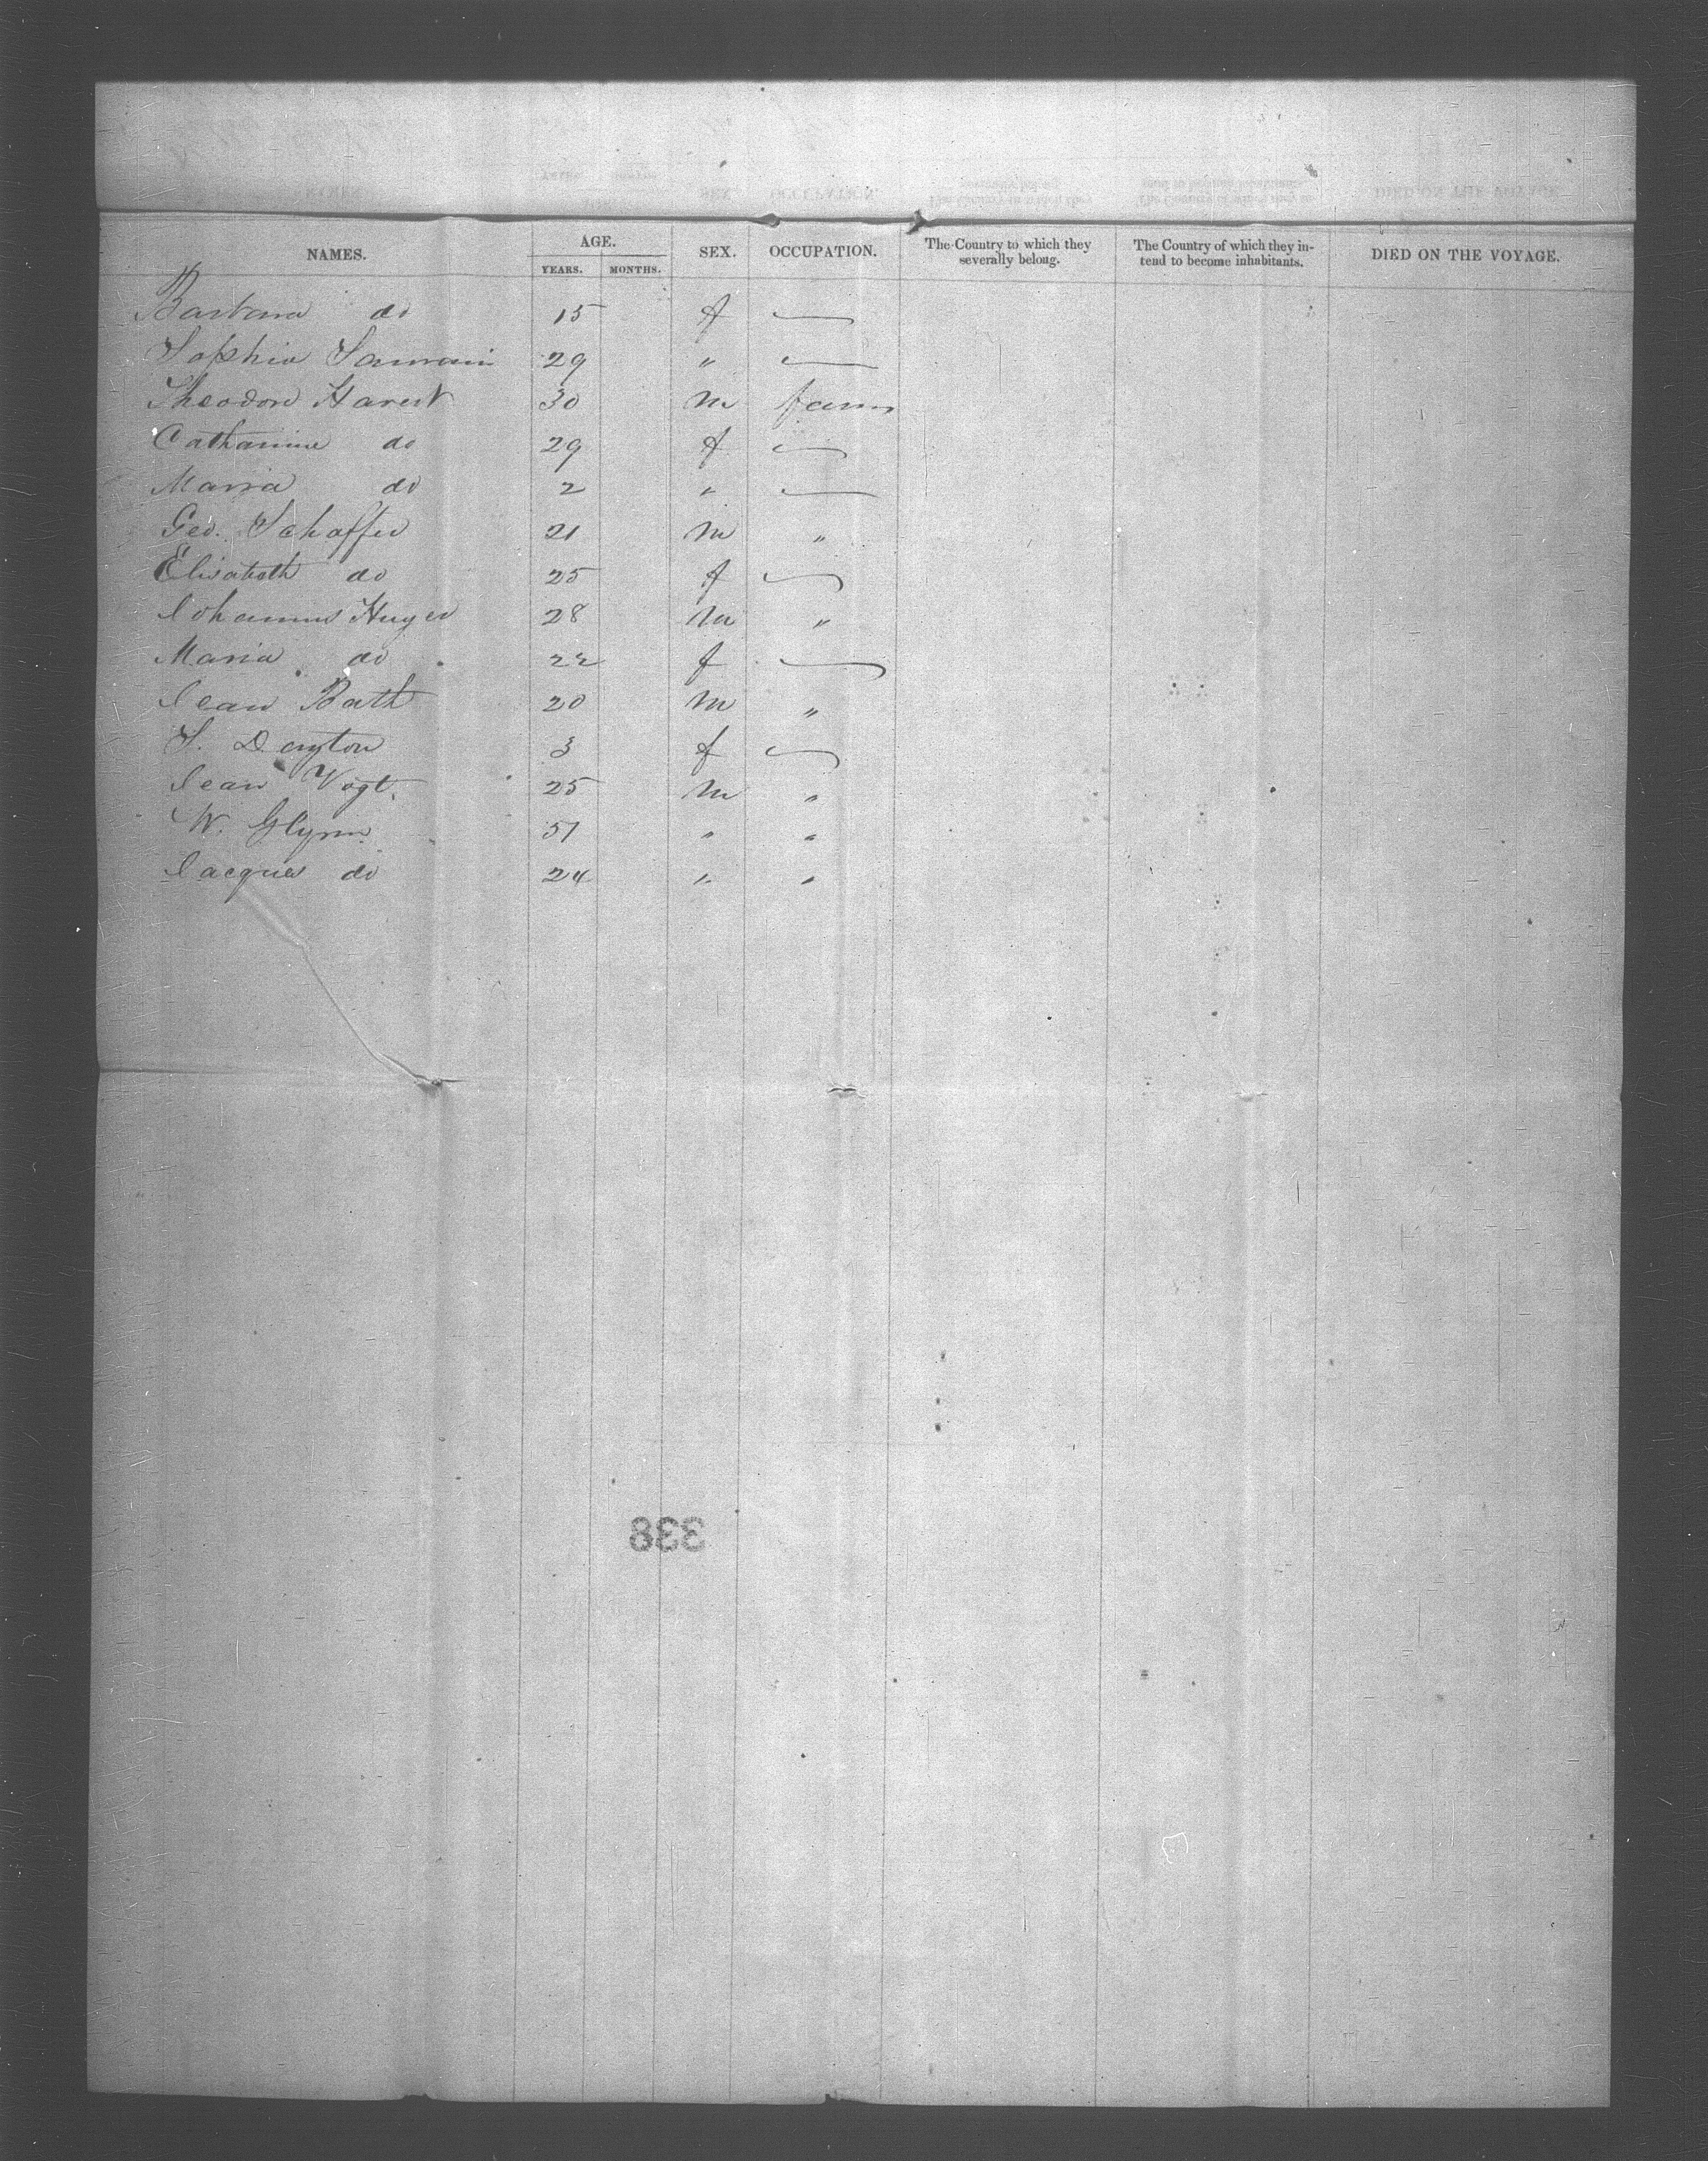 NAMES. AGE. SEX. OCCUPATION. The Country to which they severally belong. The Country of which they intend to become inhabitants. DIED ON THE VOYAGE.
YEARS. MONTHS.
Barbara do 15 f —
Sophia 29 " —
Theodore Harent 30 m farm
Catharine do 29 f —
Maria do 2 " —
Geo. Schaffer 21 m "
Elisabeth do 25 f —
Johannes Huger 28 m "
Maria do 22 f —
Jean Bath 20 m "
S. Dayton 3 f —
Jean Vogt. 25 m "
W. Glynn 51 " "
Jacques do 24 " "
338